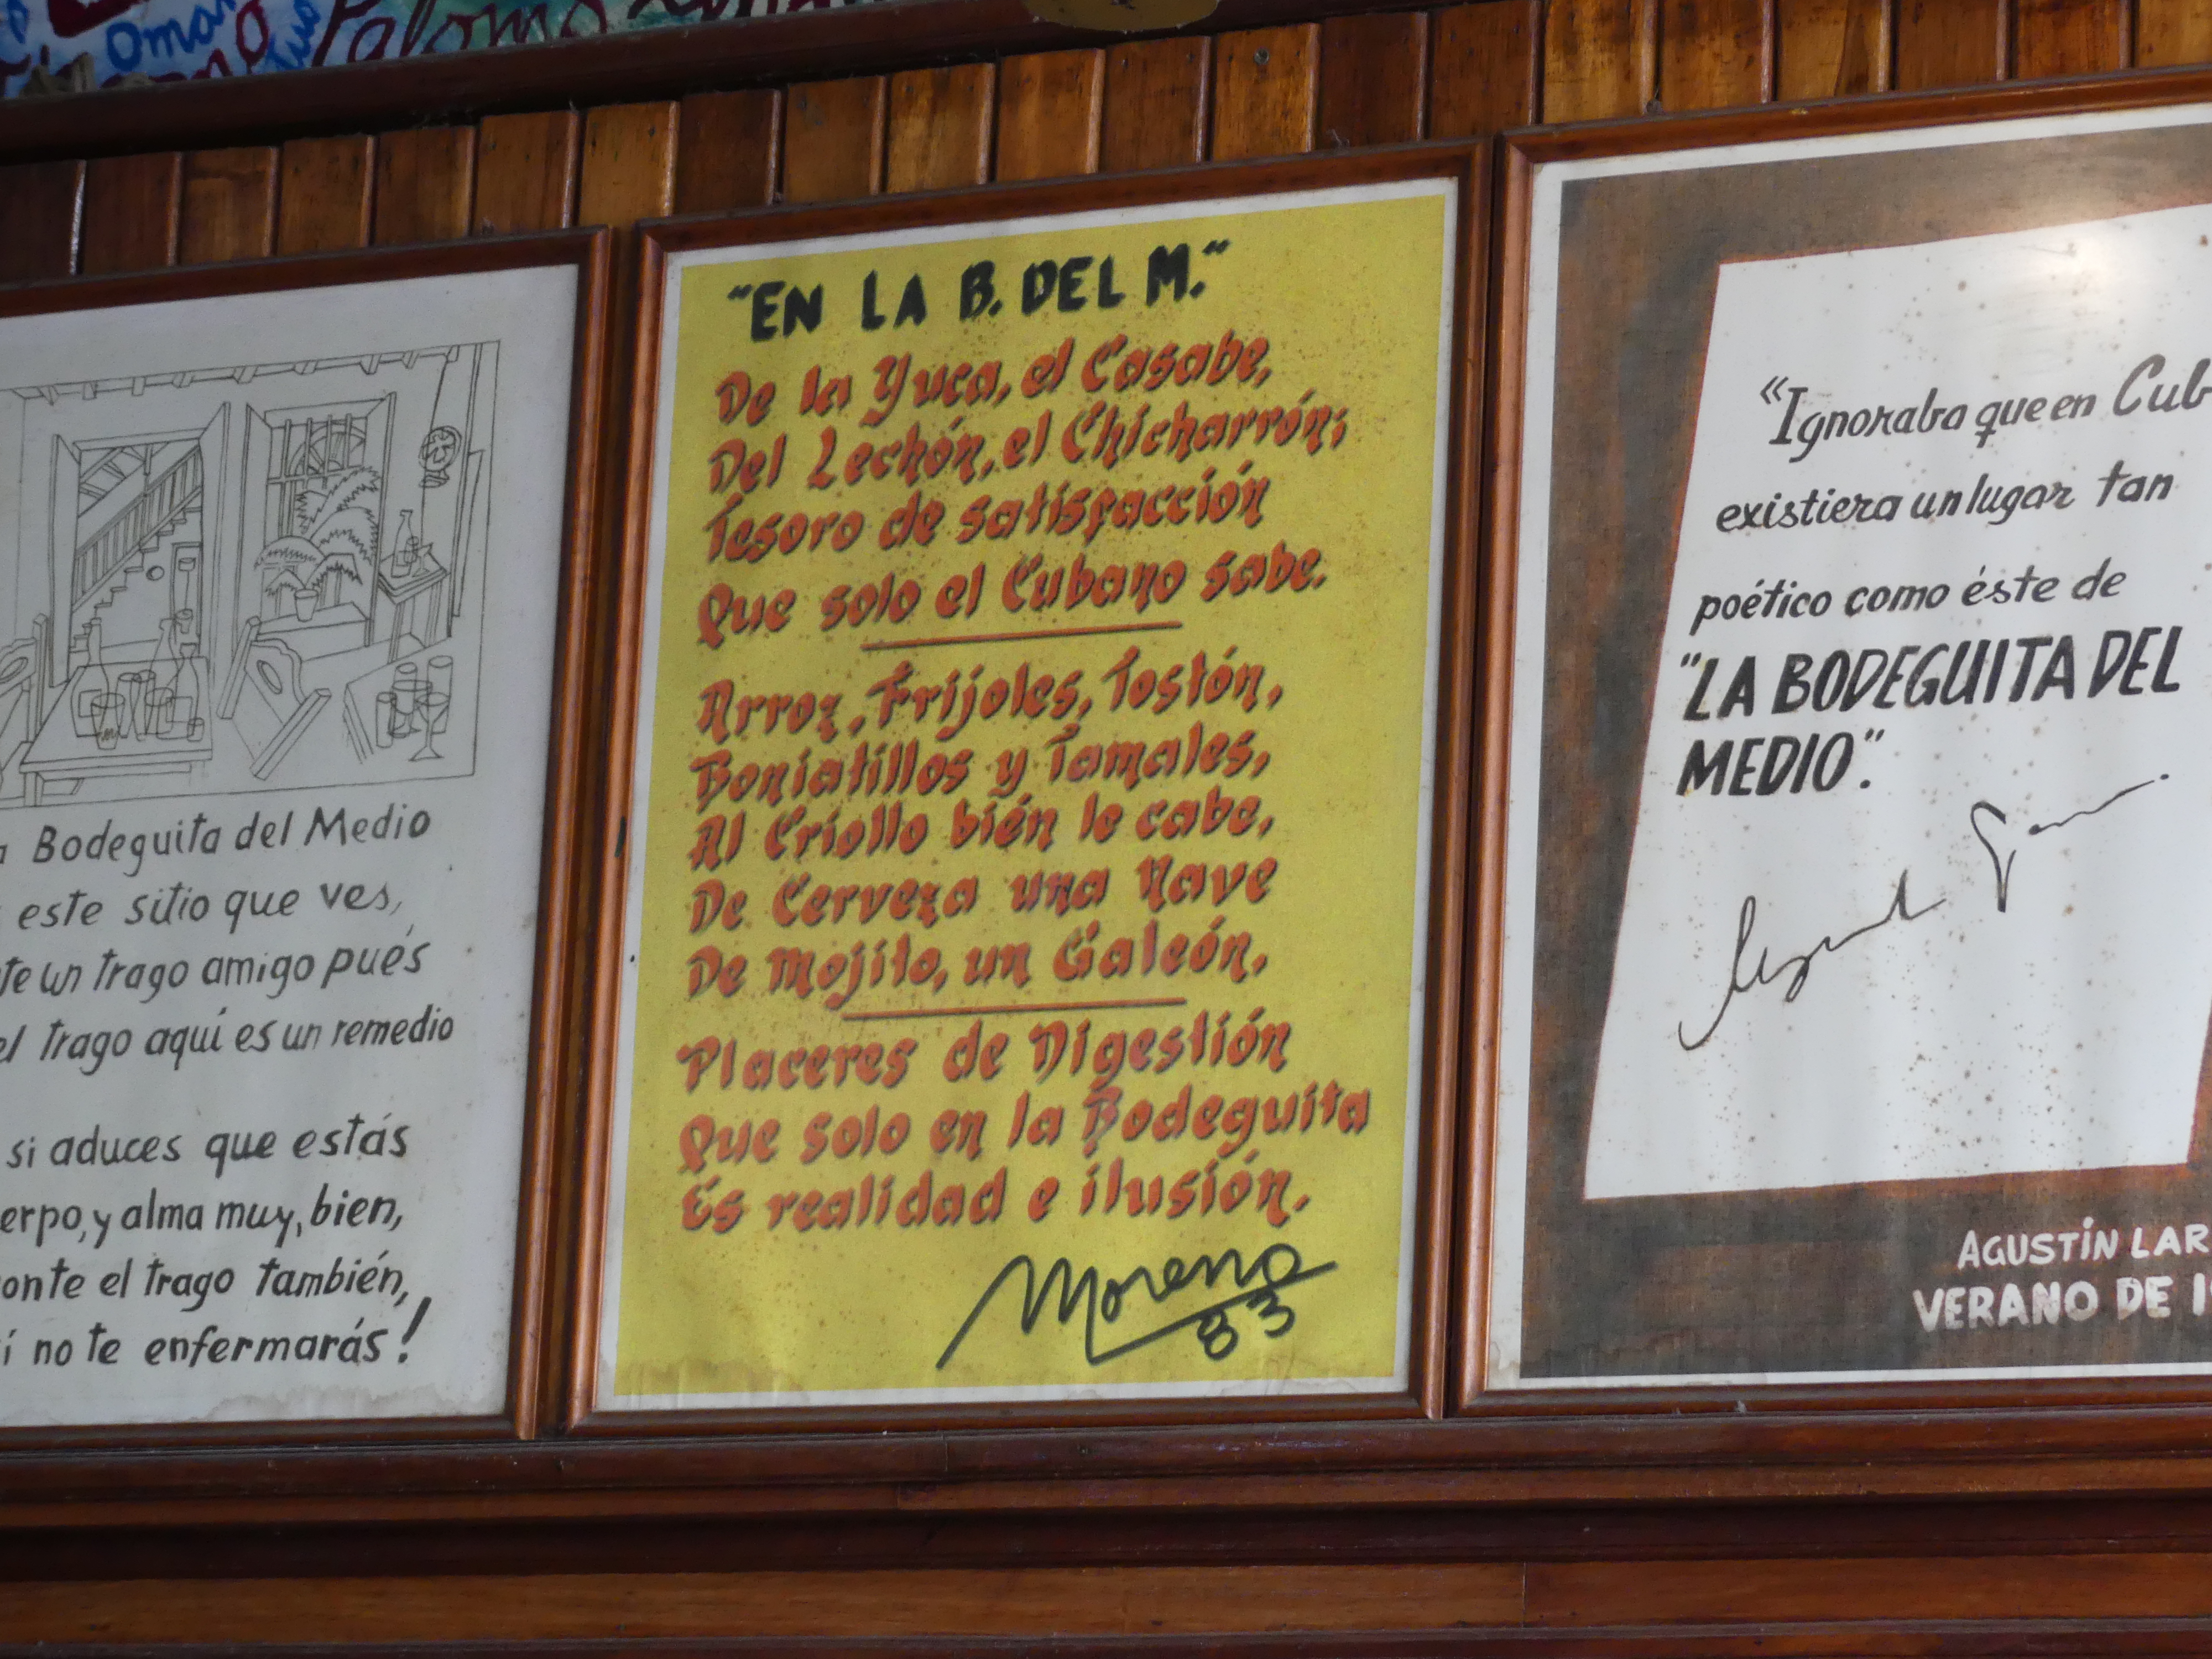 Omar
Paloma
Bodeguita del Medio
este sitio que ves,
te un trago amigo pués
el trago aquí es un remedio
si aduces que estás
erpo, y alma muy, bien,
onte el trago también,
í no te enfermarás!
"EN LA B. DEL M."
De la Yuca, el Casabe,
Del Lechón, el Chicharrón;
Tesoro de satisfacción
Que solo el Cubano sabe.
Arroz, Frijoles, Tostón,
Boniatillos y Tamales,
Al Criollo bién le cabe,
De Cerveza una Nave
De Mojito, un Galeón.
Placeres de Digestión
Que solo en la Bodeguita
Es realidad e ilusión.
Moreno
83
“Ignoraba que en Cub
existiera un lugar tan
poético como éste de
"LA BODEGUITA DEL
MEDIO."
AGUSTÍN LAR
VERANO DE 1